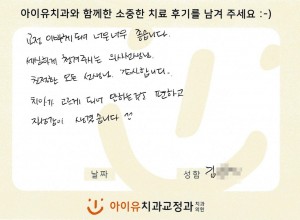 아이유치과와 함께한 소중한 치료 후기를 남겨 주세요 :-)
교정 이쁘게 되어 너무너무 좋습니다.
세심하게 챙겨주시는 의사선생님,
친절한 모든 선생님, 감사합니다.
치아가 고르게 되어 편하고
자신감이 생겼습니다
날짜
성함 김
아이유치과교정과 치과의원